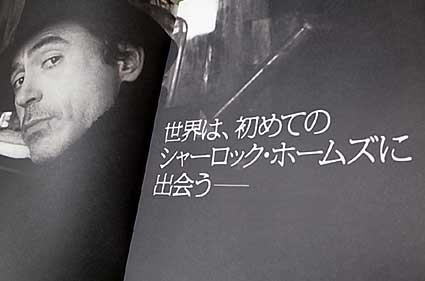 世界は、初めての
シャーロック・ホームズに
出会う──